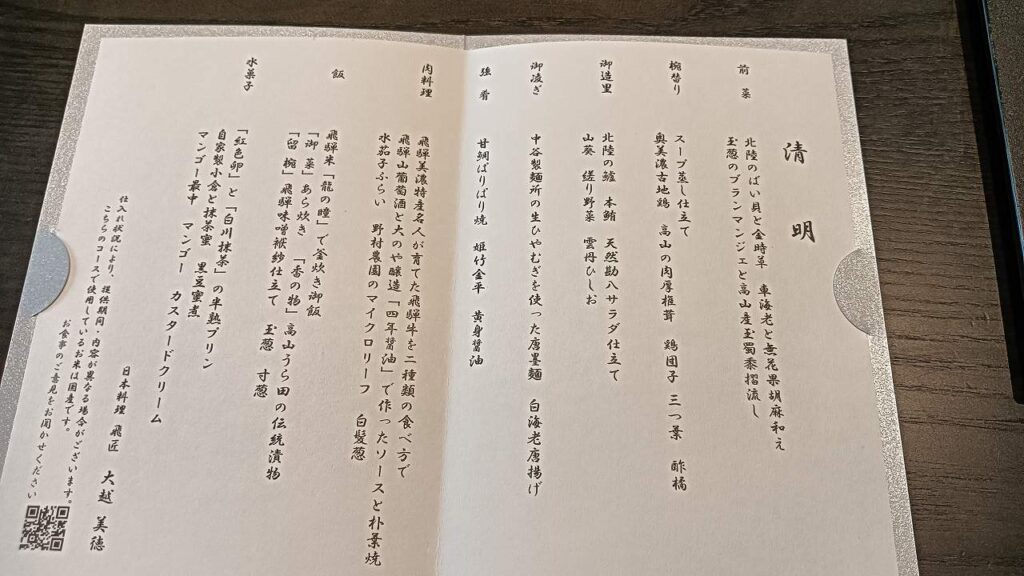 清明
前菜
北陸のばい貝と金時草　車海老と無花果胡麻和え
玉葱のブランマンジェと高山産玉蜀黍摺流し
椀替り
スープ蒸し仕立て
奥美濃古地鶏　高山の肉厚椎茸　鶏団子　三つ葉　酢橘
御造里
北陸の鱸　本鮪　天然勘八サラダ仕立て
山葵　縒り野菜　雲丹ひしお
御凌ぎ
中谷製麺所の生ひやむぎを使った唐墨麺　白海老唐揚げ
強肴
甘鯛ぱりぱり焼　姫竹金平　黄身醤油
肉料理
飛騨美濃特産名人が育てた飛騨牛を二種類の食べ方で
飛騨山葡萄酒と大のや醸造「四年醤油」で作ったソースと朴葉焼
水茄子ふらい　野村農園のマイクロリーフ　白髪葱
飯
飛騨米「龍の瞳」で釜炊き御飯
「御菜」あら炊き　「香の物」高山うら田の伝統漬物
「留椀」飛騨味噌袱紗仕立て　玉葱　寸葱
水菓子
「紅色卵」と「白川抹茶」の半熟プリン
自家製小倉と抹茶蜜　黒豆蜜煮
マンゴー最中　マンゴー　カスタードクリーム
日本料理　飛匠　大越　美徳
仕入れ状況により、提供期間・内容が異なる場合がございます。
こちらのコースで使用しているお米は国産です。
お食事のご意見をお聞かせください